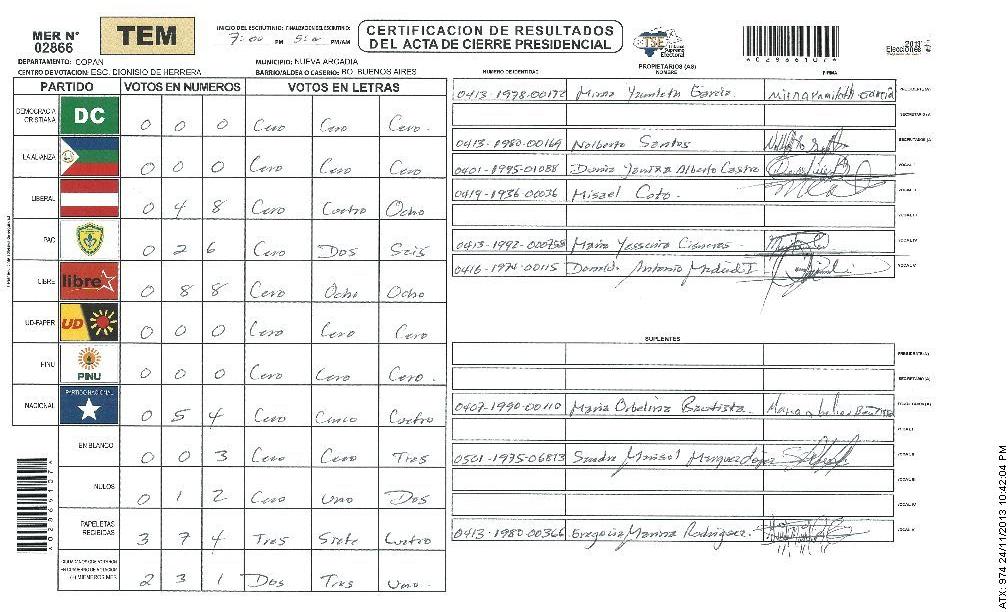 MER N° 02866
TEM
INICIO DEL ESCRUTINIO: FINALIZACION DEL ESCRUTINIO:
7:00 PM 5:00 PM/AM
CERTIFICACION DE RESULTADOS
DEL ACTA DE CIERRE PRESIDENCIAL
TSE Tribunal Supremo Electoral
A028661074
Elecciones
DEPARTAMENTO: COPAN
MUNICIPIO: NUEVA ARCADIA
CENTRO DE VOTACION: ESC. DIONISIO DE HERRERA
BARRIO/ALDEA O CASERIO: BO. BUENOS AIRES
PARTIDO VOTOS EN NUMEROS VOTOS EN LETRAS
DEMOCRACIA CRISTIANA DC 0 0 0 Cero Cero Cero.
LA ALIANZA 0 0 0 Cero Cero Cero.
LIBERAL 0 4 8 Cero Cuatro Ocho
PAC 0 2 6 Cero Dos Seis
LIBRE libre 0 8 8 Cero Ocho Ocho
UD-FAPER UD 0 0 0 Cero Cero Cero
PINU PINU 0 0 0 Cero Cero Cero.
NACIONAL PARTIDO NACIONAL 0 5 4 Cero Cinco Cuatro
EN BLANCO 0 0 3 Cero Cero Tres
NULOS 0 1 2 Cero Uno Dos
PAPELETAS RECIBIDAS 3 7 4 Tres Siete Cuatro
CIUDADANOS QUE VOTARON EN CUADERNO DE VOTACION (+) MIEMBROS MER 2 3 1 Dos Tres Uno.
PROPIETARIOS (AS)
NUMERO DE IDENTIDAD NOMBRE FIRMA
0413-1978-00172 Mirna Garcia PRESIDENTE (A)
SECRETARIO (A)
0413-1980-00169 Nolberto Santos ESCRUTADOR (A)
0401-1995-01088 Alberto Castro VOCAL I
0419-1936-00036 Misael Coto. VOCAL II
VOCAL III
0413-1992-000758 Maria Yessenia Cisneros - VOCAL IV
0416-1974-00115 Antonio VOCAL V
SUPLENTES
PRESIDENTE (A)
SECRETARIO (A)
0407-1990-00110 Maria Orbelina Bautista. ESCRUTADOR (A)
VOCAL I
0501-1975-06813 Sandra Marisol VOCAL II
VOCAL III
VOCAL IV
0413-1980-00366 Gregoria Marina Rodriguez. VOCAL V
A028661074
ATX: 974 24/11/2013 10:42:04 PM